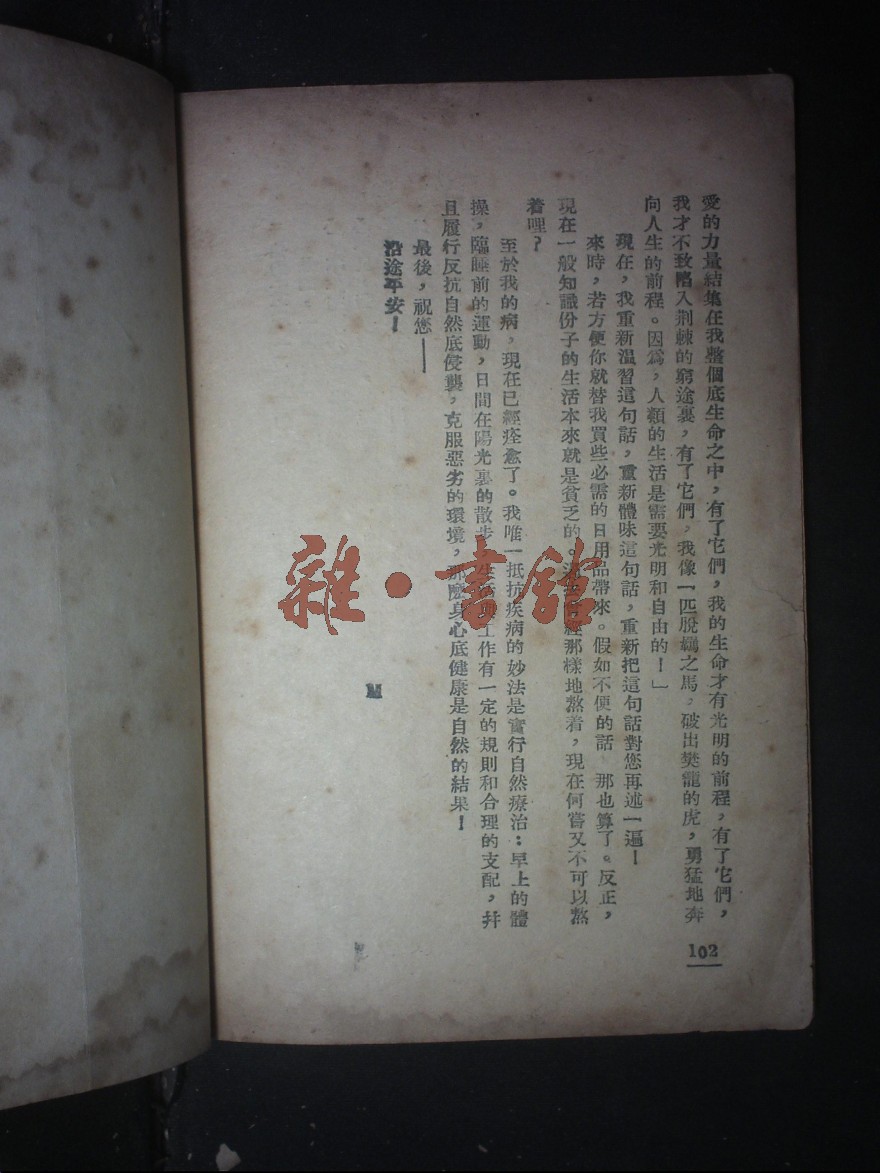 愛的力量結集在我整個底生命之中，有了它們，我的生命才有光明的前程，有了它們，
我才不致陷入荆棘的窮途裏，有了它們，我像一匹脫羈之馬，破出樊籠的虎，勇猛地奔
向人生的前程。因爲，人類的生活是需要光明和自由的！」
現在，我重新溫習這句話，重新體味這句話，重新把這句話對您再述一遍！
來時，若方便你就替我買些必需的日用品帶來。假如不便的話 那也算了。反正，
現在一般知識份子的生活本來就是貧乏的。那樣地熬着，現在何嘗又不可以熬
着哩？
至於我的病，現在已經痊愈了。我唯一抵抗疾病的妙法是實行自然療治：早上的體
操，臨睡前的運動，日間在陽光裏的散步，工作有一定的規則和合理的支配，幷
且履行反抗自然底侵襲，克服惡劣的環境，那麽身心底健康是自然的結果！
最後，祝您——
沿途平安！
102
雜·書館